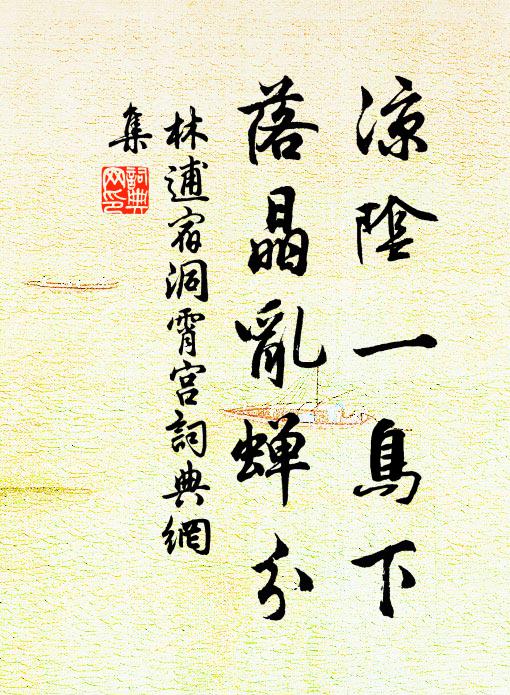 凉陰一鳥下
落晶亂蝉分
林逋宿洞霄宫詞典網
集
詞典
网印